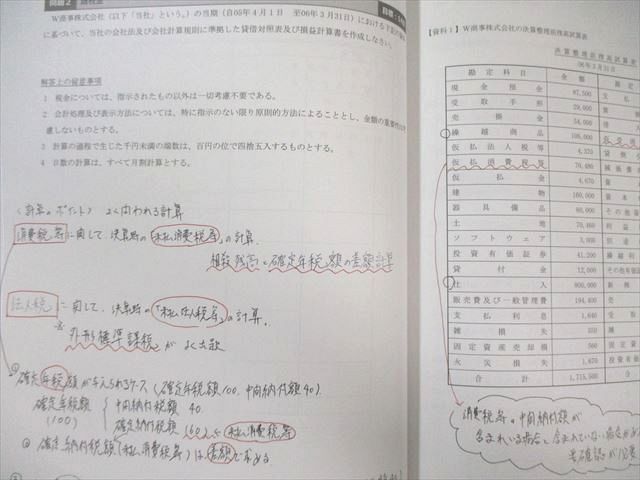 問題2 諸税金
W商事株式会社(以下「当社」という。)の当期(自05年4月1日 至06年3月31日)における下記の
に基づいて、当社の会社法及び会社計算規則に準拠した貸借対照表及び損益計算書を作成しなさい。
解答上の留意事項
1 税金については、指示されたもの以外は一切考慮不要である。
2 会計処理及び表示方法については、特に指示のない限り原則的方法によることとし、金額の重要性は考
慮しないものとする。
3 計算の過程で生じた千円未満の端数は、百円の位で四捨五入するものとする。
4 日数の計算は、すべて月割計算とする。
〈計算のポイント〉 よく問われる計算
消費税等に関して、決算時の「未払消費税等」の計算。
相殺残高と確定年税額の差額計算
法人税 に関して、決算時の「未払法人税等」の計算。
※ 外形標準課税 がよく出款
確定年税額が与えられるケース(確定年税額100. 中間納付税額40)
確定年税額 中間納付税額 40
(100) 確定納付税額 160 未払消費税等
確定納付税額(未払消費税等)は差額で求める
【資料1】W商事株式会社の決算整理前残高試算表
決算整理前残高試算表
06年3月31日
勘定科目 金額 勘定
現金預金 87,500 支払
受取手形 29,000 買
売掛金 54,000
繰越商品 108,000
仮払法人税等 4,320
仮払消費税等 70,480 減価償
仮払金 4,670 資
建物 160,000 資本
器具備品 60,000 その他
土地 70,460 利益
ソフトウェア 3,000 別途
投資有価証券 41,200 繰越利
貸付金 12,000 その他有価
仕入 800,000
販売費及び一般管理費 194,400 売
支払利息 1,640 受取
雑損失 570 雑
固定資産売却損 560 固定資
火災損失 1,670 投資有価
合計 1,715,500
消費税等の中間納付額が
含まれいる場合と含まれていない場合が
要確認が必要